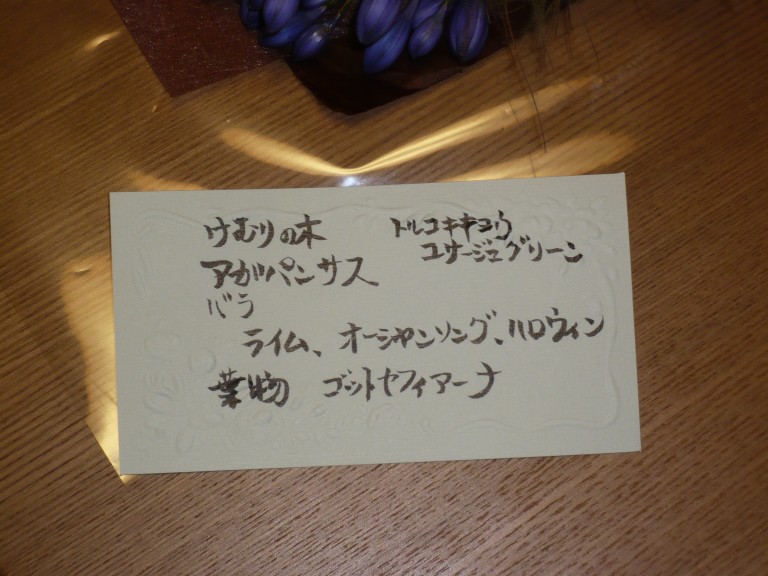 けむりの木
トルコキキョウ
ユサージュグリーン
アガパンサス
バラ
ライム、オーシャンソング、ハロウィン
葉物 ゴットセフィアーナ